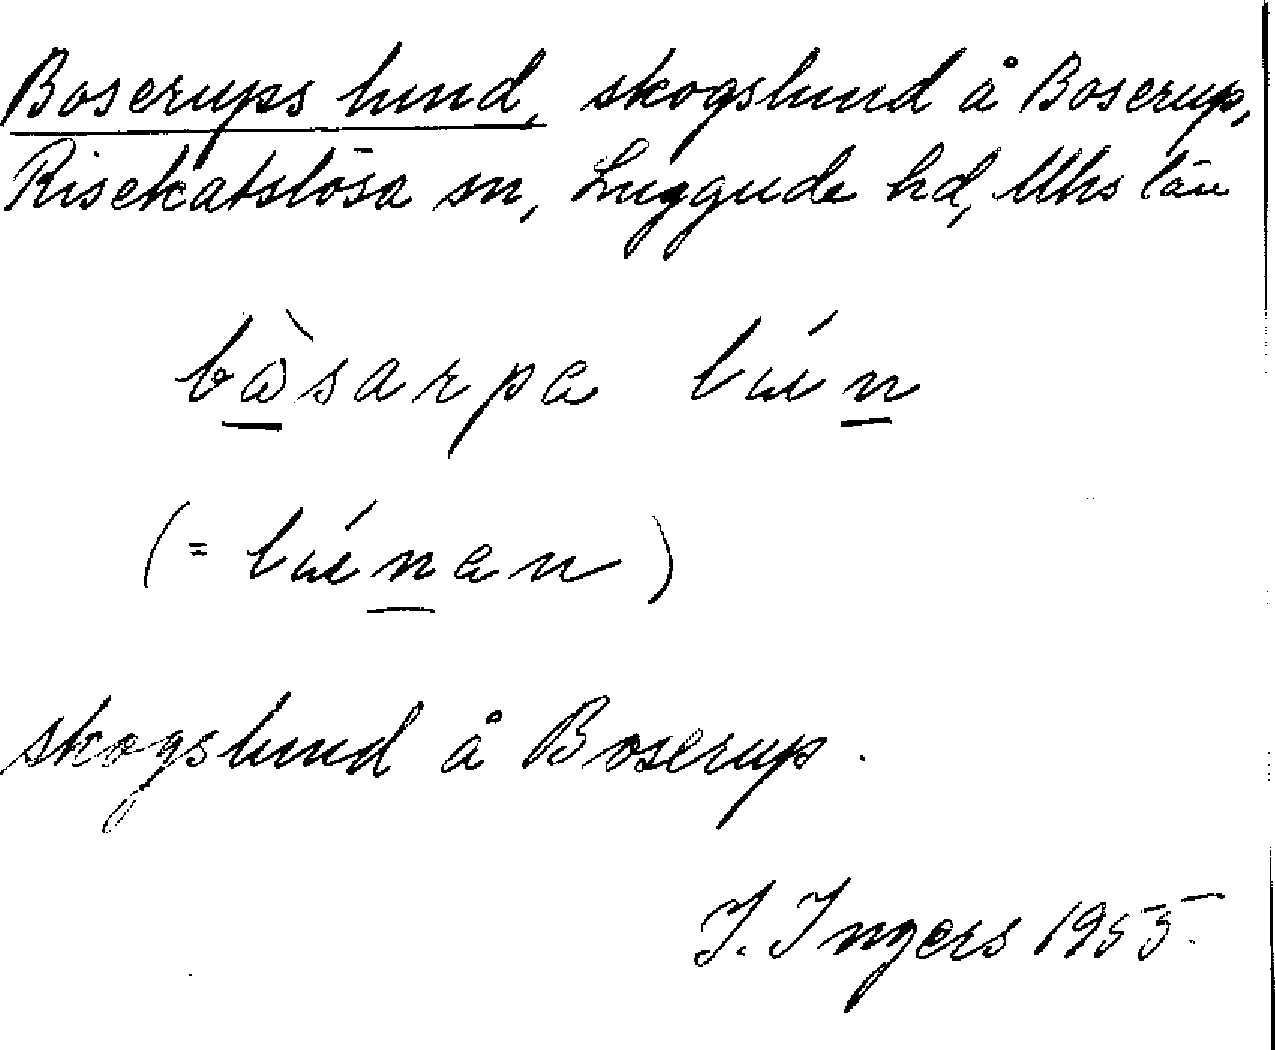 Boserups lund, skogslund å Boserup,
Risekatslösa sn, Luggude hd, Mhs län
bòsarpa lún
(= lúnan)
skogslund å Boserup.
I. Ingers 1955.